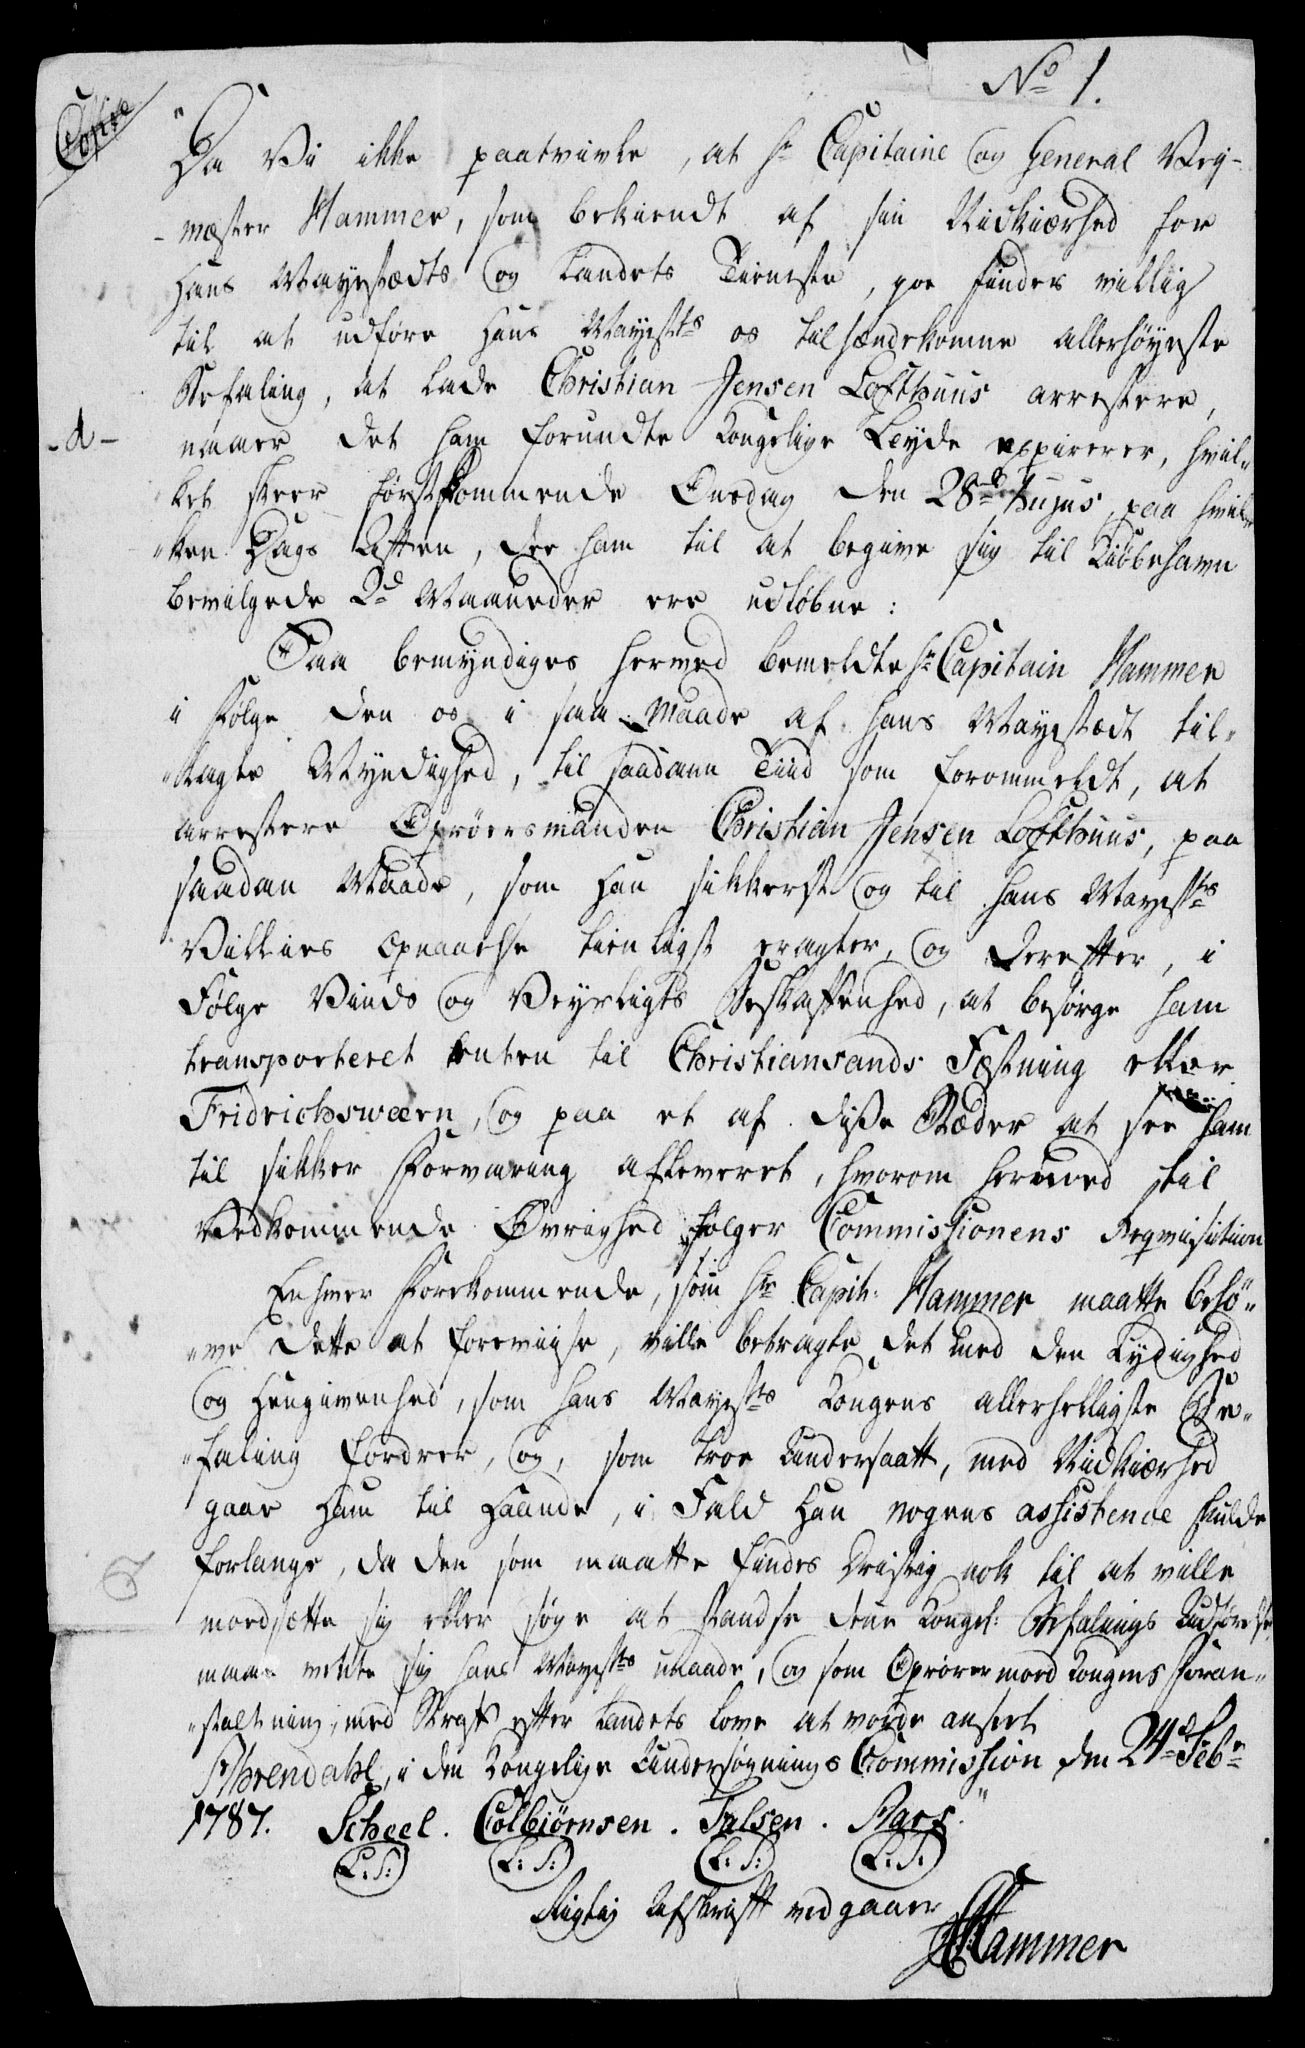 No 1.
Copie
"Da Vi ikke paatvivle, at Hr Capitaine og General Vej-
-mester Hammer, som bekiendt af sin Nidkiærhed for
Hans Mayestædts og Landets Tieneste, jo findes villig
til at udføre Hans Mayestts os tilhændekomne allerhøyeste
Befaling, at lade Christian Jensen Lofthuus arrestere,
naaer det ham forundte Kongelige Leyde expirerer, hvil„
„ket skeer førstkommende Onsdag den 28de hujus, paa hvil„
„ken Dags Aften, de ham til at begive sig til Kiøbehavn
bevilgede 2de Maaneder ere udløbne:
Saa bemyndiges herved bemeldte Hr Capitain Hammer
i Følge den os i saa Maade af Hans Mayestædt til„
„lagte Myndighed, til saadann Tiid som forommeldt, at
arrestere Oprørersmanden Christian Jensen Lofthuus, paa
saadan Maade, som Han sikkerst og til Hans Mayestts
Villies Opnaaelse tienligst eragter, og derefter, i
Følge Vinds og Veyrligts Beskaffenhed, at besørge ham
transporteret enten til Christiansands Fæstning eller
Fridrichswærn, og paa et af disse Stæder at see ham
til sikker Forvaring afleveret, hvorom herved til
Vedkommende Øvrighed følger Commissionens Reqvisition
Enhver Forekommende, som Hr Capit: Hammer maatte behø„
„ve dette at foreviise, ville betragte det med den Lydighed
og Hengivenhed, som Hans Mayestts Kongens allerhelligste Be„
„faling fordrer, og, som troe Undersaatt, med Nidkiærhed
gaae Ham til Haande, i Fald Han nogens assistence skulde
forlange, da den som maatte findes dristig nok til at ville
modsætte sig eller søge at standse denne Kongel: Befalings Udførelse,
maae vente sig Hans Mayestts unaade, og som Oprører mod Kongens Foran„
„staltning, med Straf efter Landets Love at vorde anseet
Ahrendahl, i den Kongelige Undersøgnings Commission den 24de Febr
1787. Scheel. Colbiørnsen. Falsen. Aars."
L: S: L: S: L: S: L: S:
Rigtig Afskrift vedgaaer
Hammer